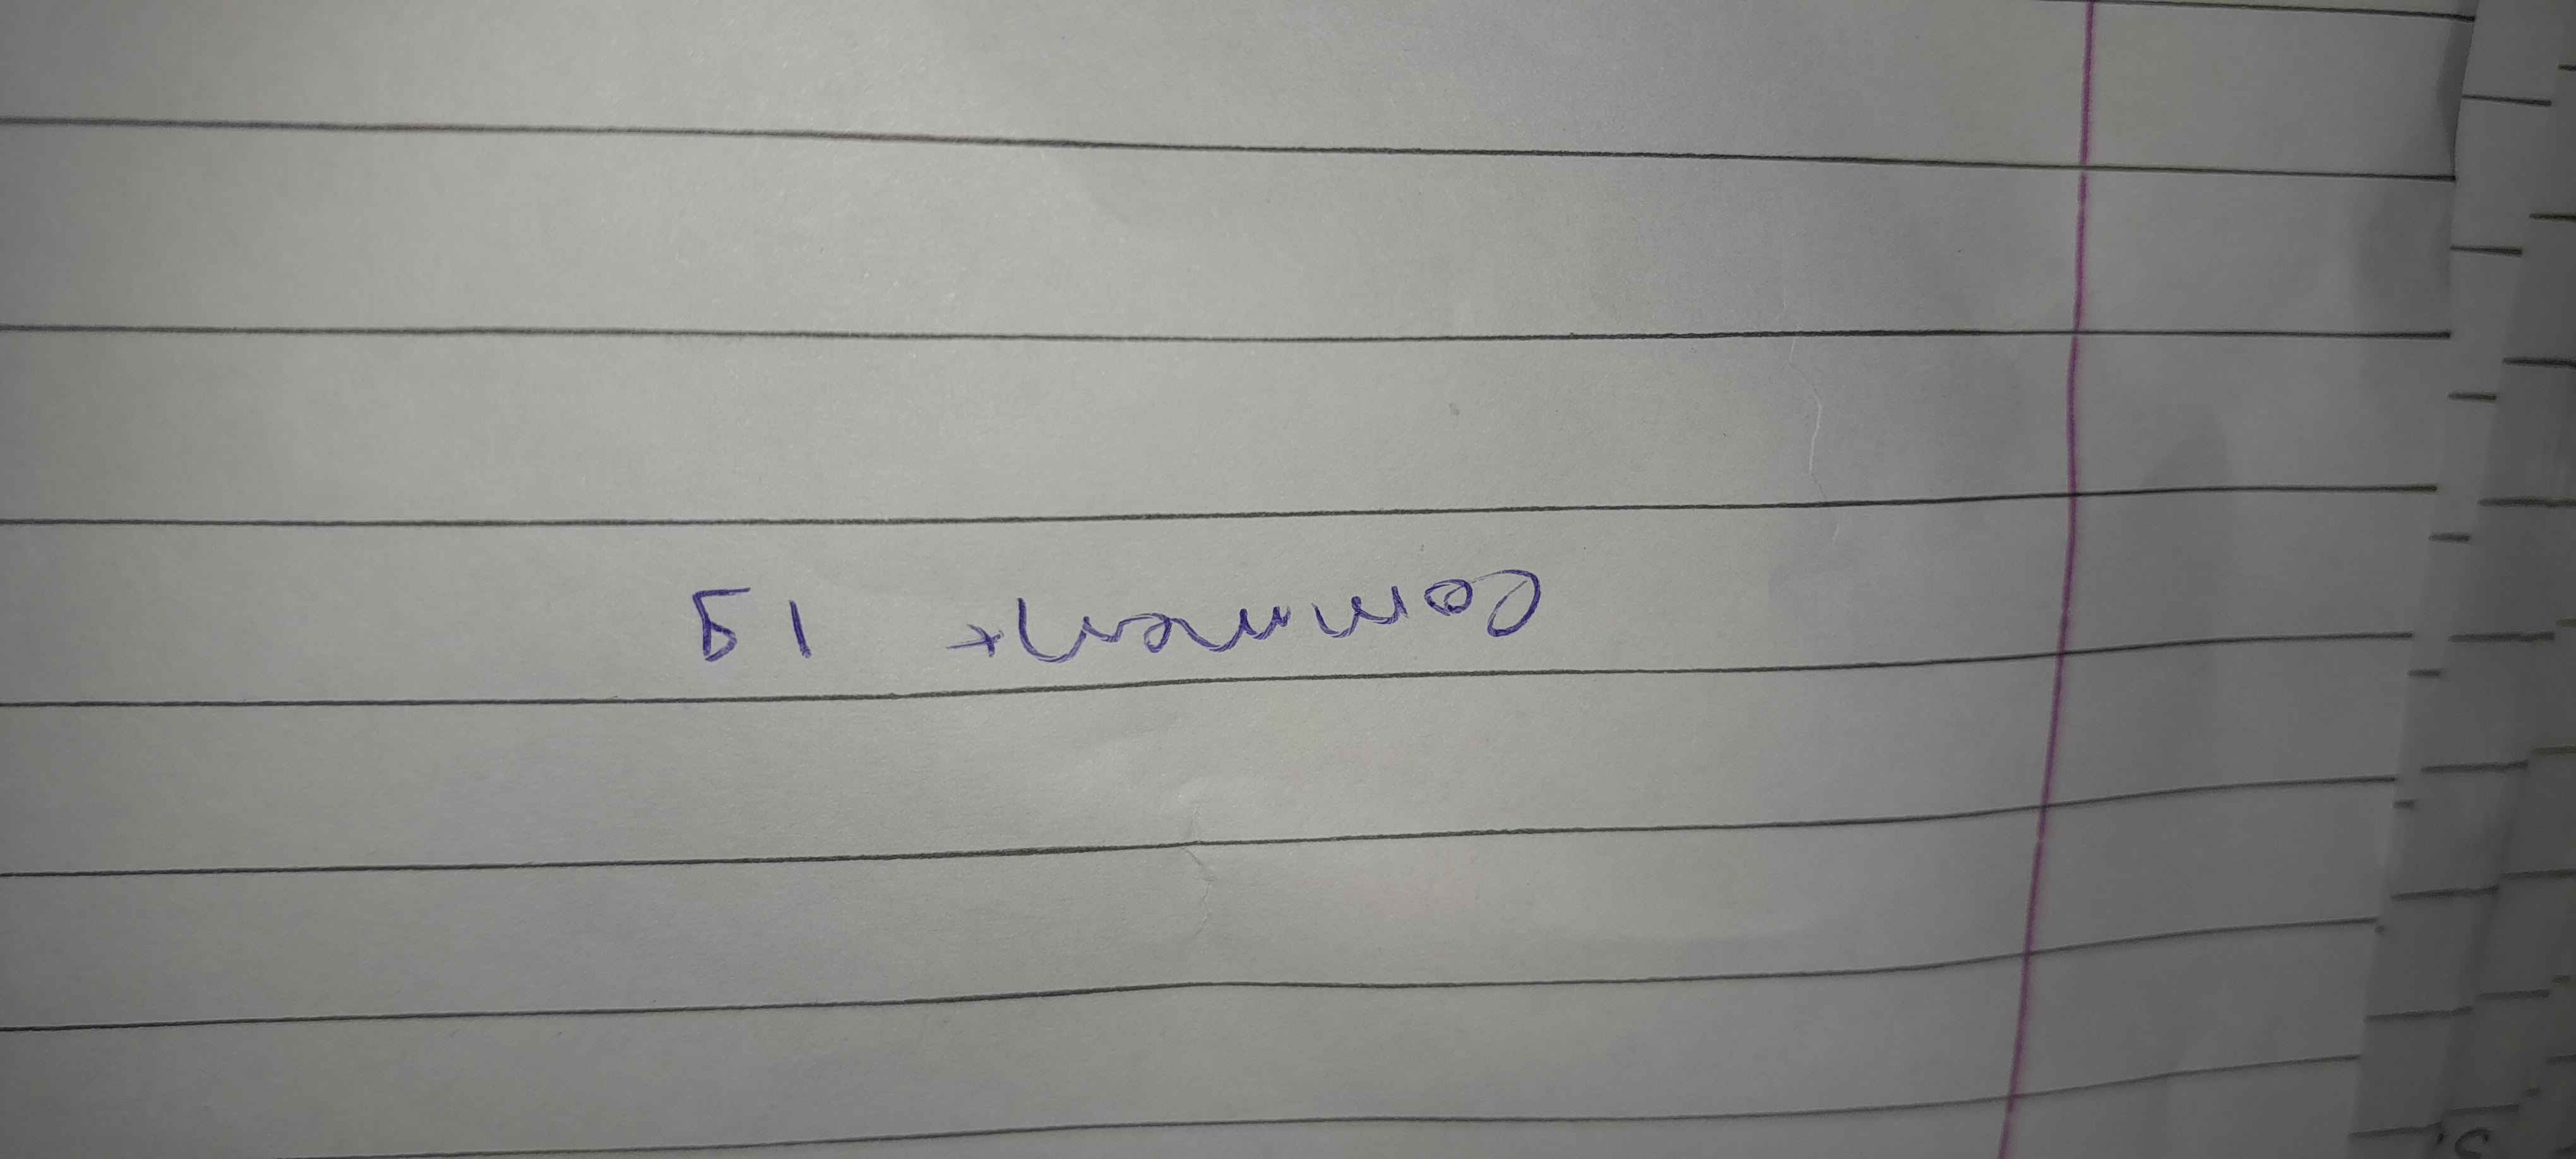 Comment 19